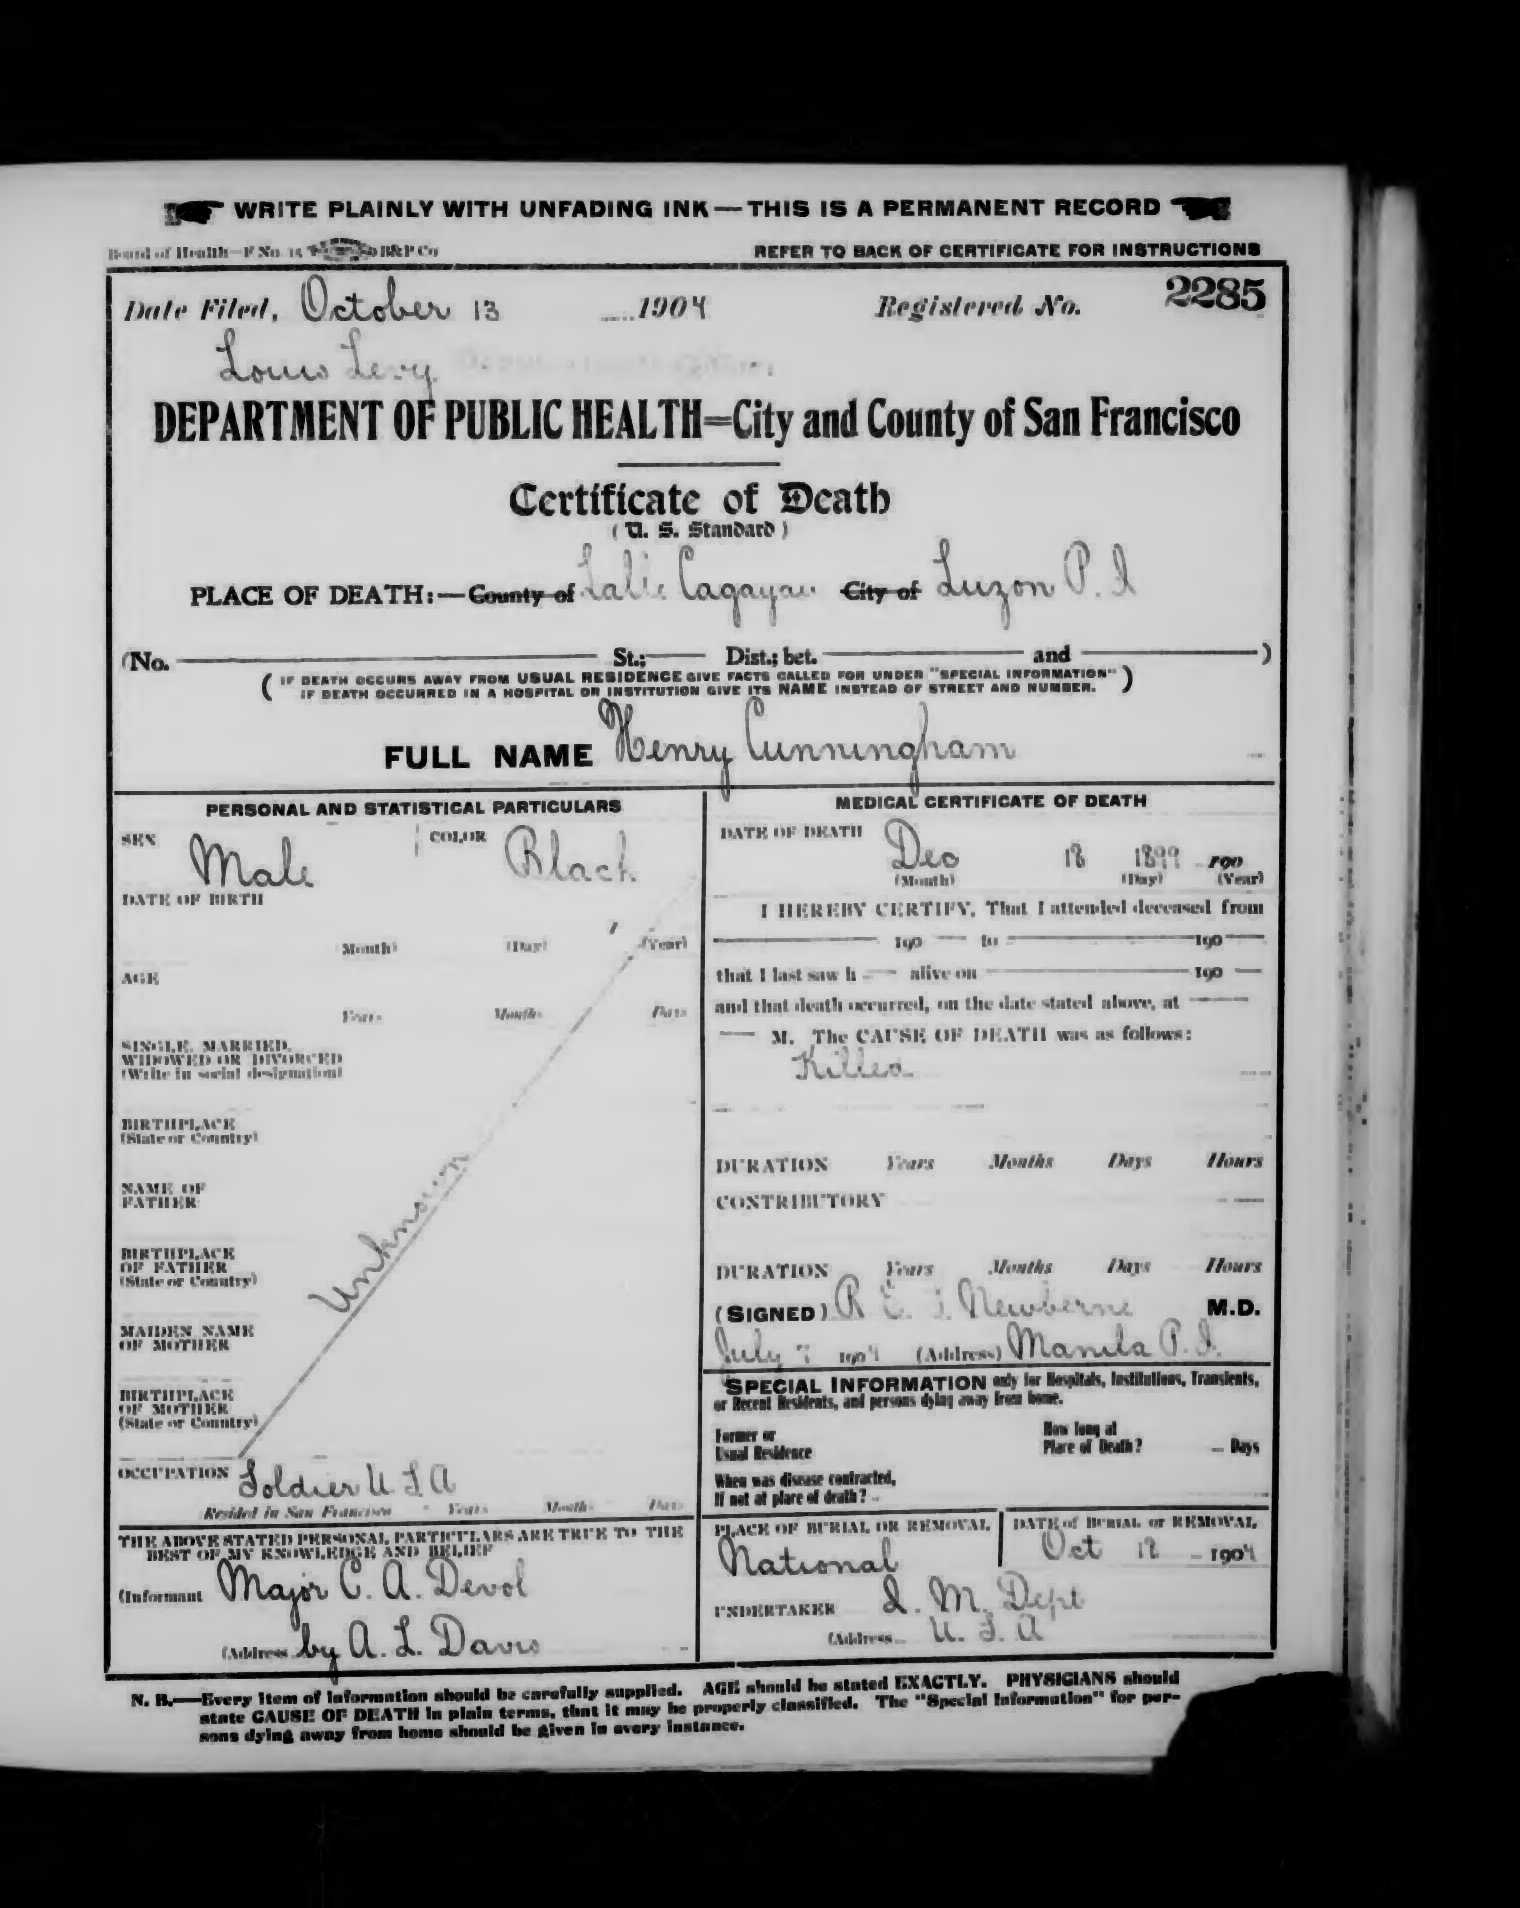 WRITE PLAINLY WITH UNFADING INK — THIS IS A PERMANENT RECORD
Board of Health—F No. 15 B&P Co
REFER TO BACK OF CERTIFICATE FOR INSTRUCTIONS
Date Filed, October 13 1904 Registered No. 2285
Louis Levy
DEPARTMENT OF PUBLIC HEALTH=City and County of San Francisco
Certificate of Death
(U. S. Standard)
PLACE OF DEATH:—County of Lallo Cagayan City of Luzon P. I
(No. St.; Dist.; bet. and )
(IF DEATH OCCURS AWAY FROM USUAL RESIDENCE GIVE FACTS CALLED FOR UNDER "SPECIAL INFORMATION"
IF DEATH OCCURRED IN A HOSPITAL OR INSTITUTION GIVE ITS NAME INSTEAD OF STREET AND NUMBER.)
FULL NAME Henry Cunningham
PERSONAL AND STATISTICAL PARTICULARS
SEX Male COLOR Black
DATE OF BIRTH
(Month) (Day) (Year)
AGE
Years Months Days
SINGLE, MARRIED,
WIDOWED OR DIVORCED
(Write in social designation)
BIRTHPLACE
(State or Country)
NAME OF
FATHER
Unknown
BIRTHPLACE
OF FATHER
(State or Country)
MAIDEN NAME
OF MOTHER
BIRTHPLACE
OF MOTHER
(State or Country)
OCCUPATION Soldier U S A
Resided in San Francisco Years Months Days
THE ABOVE STATED PERSONAL PARTICULARS ARE TRUE TO THE
BEST OF MY KNOWLEDGE AND BELIEF
(Informant Major C. A. Devol
(Address by A. L. Davis
MEDICAL CERTIFICATE OF DEATH
DATE OF DEATH Dec 18 1899 190
(Month) (Day) (Year)
I HEREBY CERTIFY, That I attended deceased from
190 to 190
that I last saw h alive on 190
and that death occurred, on the date stated above, at
M. The CAUSE OF DEATH was as follows:
Killed
DURATION Years Months Days Hours
CONTRIBUTORY
DURATION Years Months Days Hours
(SIGNED) R E. L. Newberne M.D.
July 7 1904 (Address) Manila P. I.
SPECIAL INFORMATION only for Hospitals, Institutions, Transients,
or Recent Residents, and persons dying away from home.
Former or
Usual Residence
How long at
Place of Death? Days
When was disease contracted,
If not at place of death?
PLACE OF BURIAL OR REMOVAL DATE of BURIAL or REMOVAL
National Oct 12 1904
UNDERTAKER Q. M. Dept
(Address U. S. A
N. B.—Every item of information should be carefully supplied. AGE should be stated EXACTLY. PHYSICIANS should
state CAUSE OF DEATH in plain terms, that it may be properly classified. The "Special Information" for per-
sons dying away from home should be given in every instance.